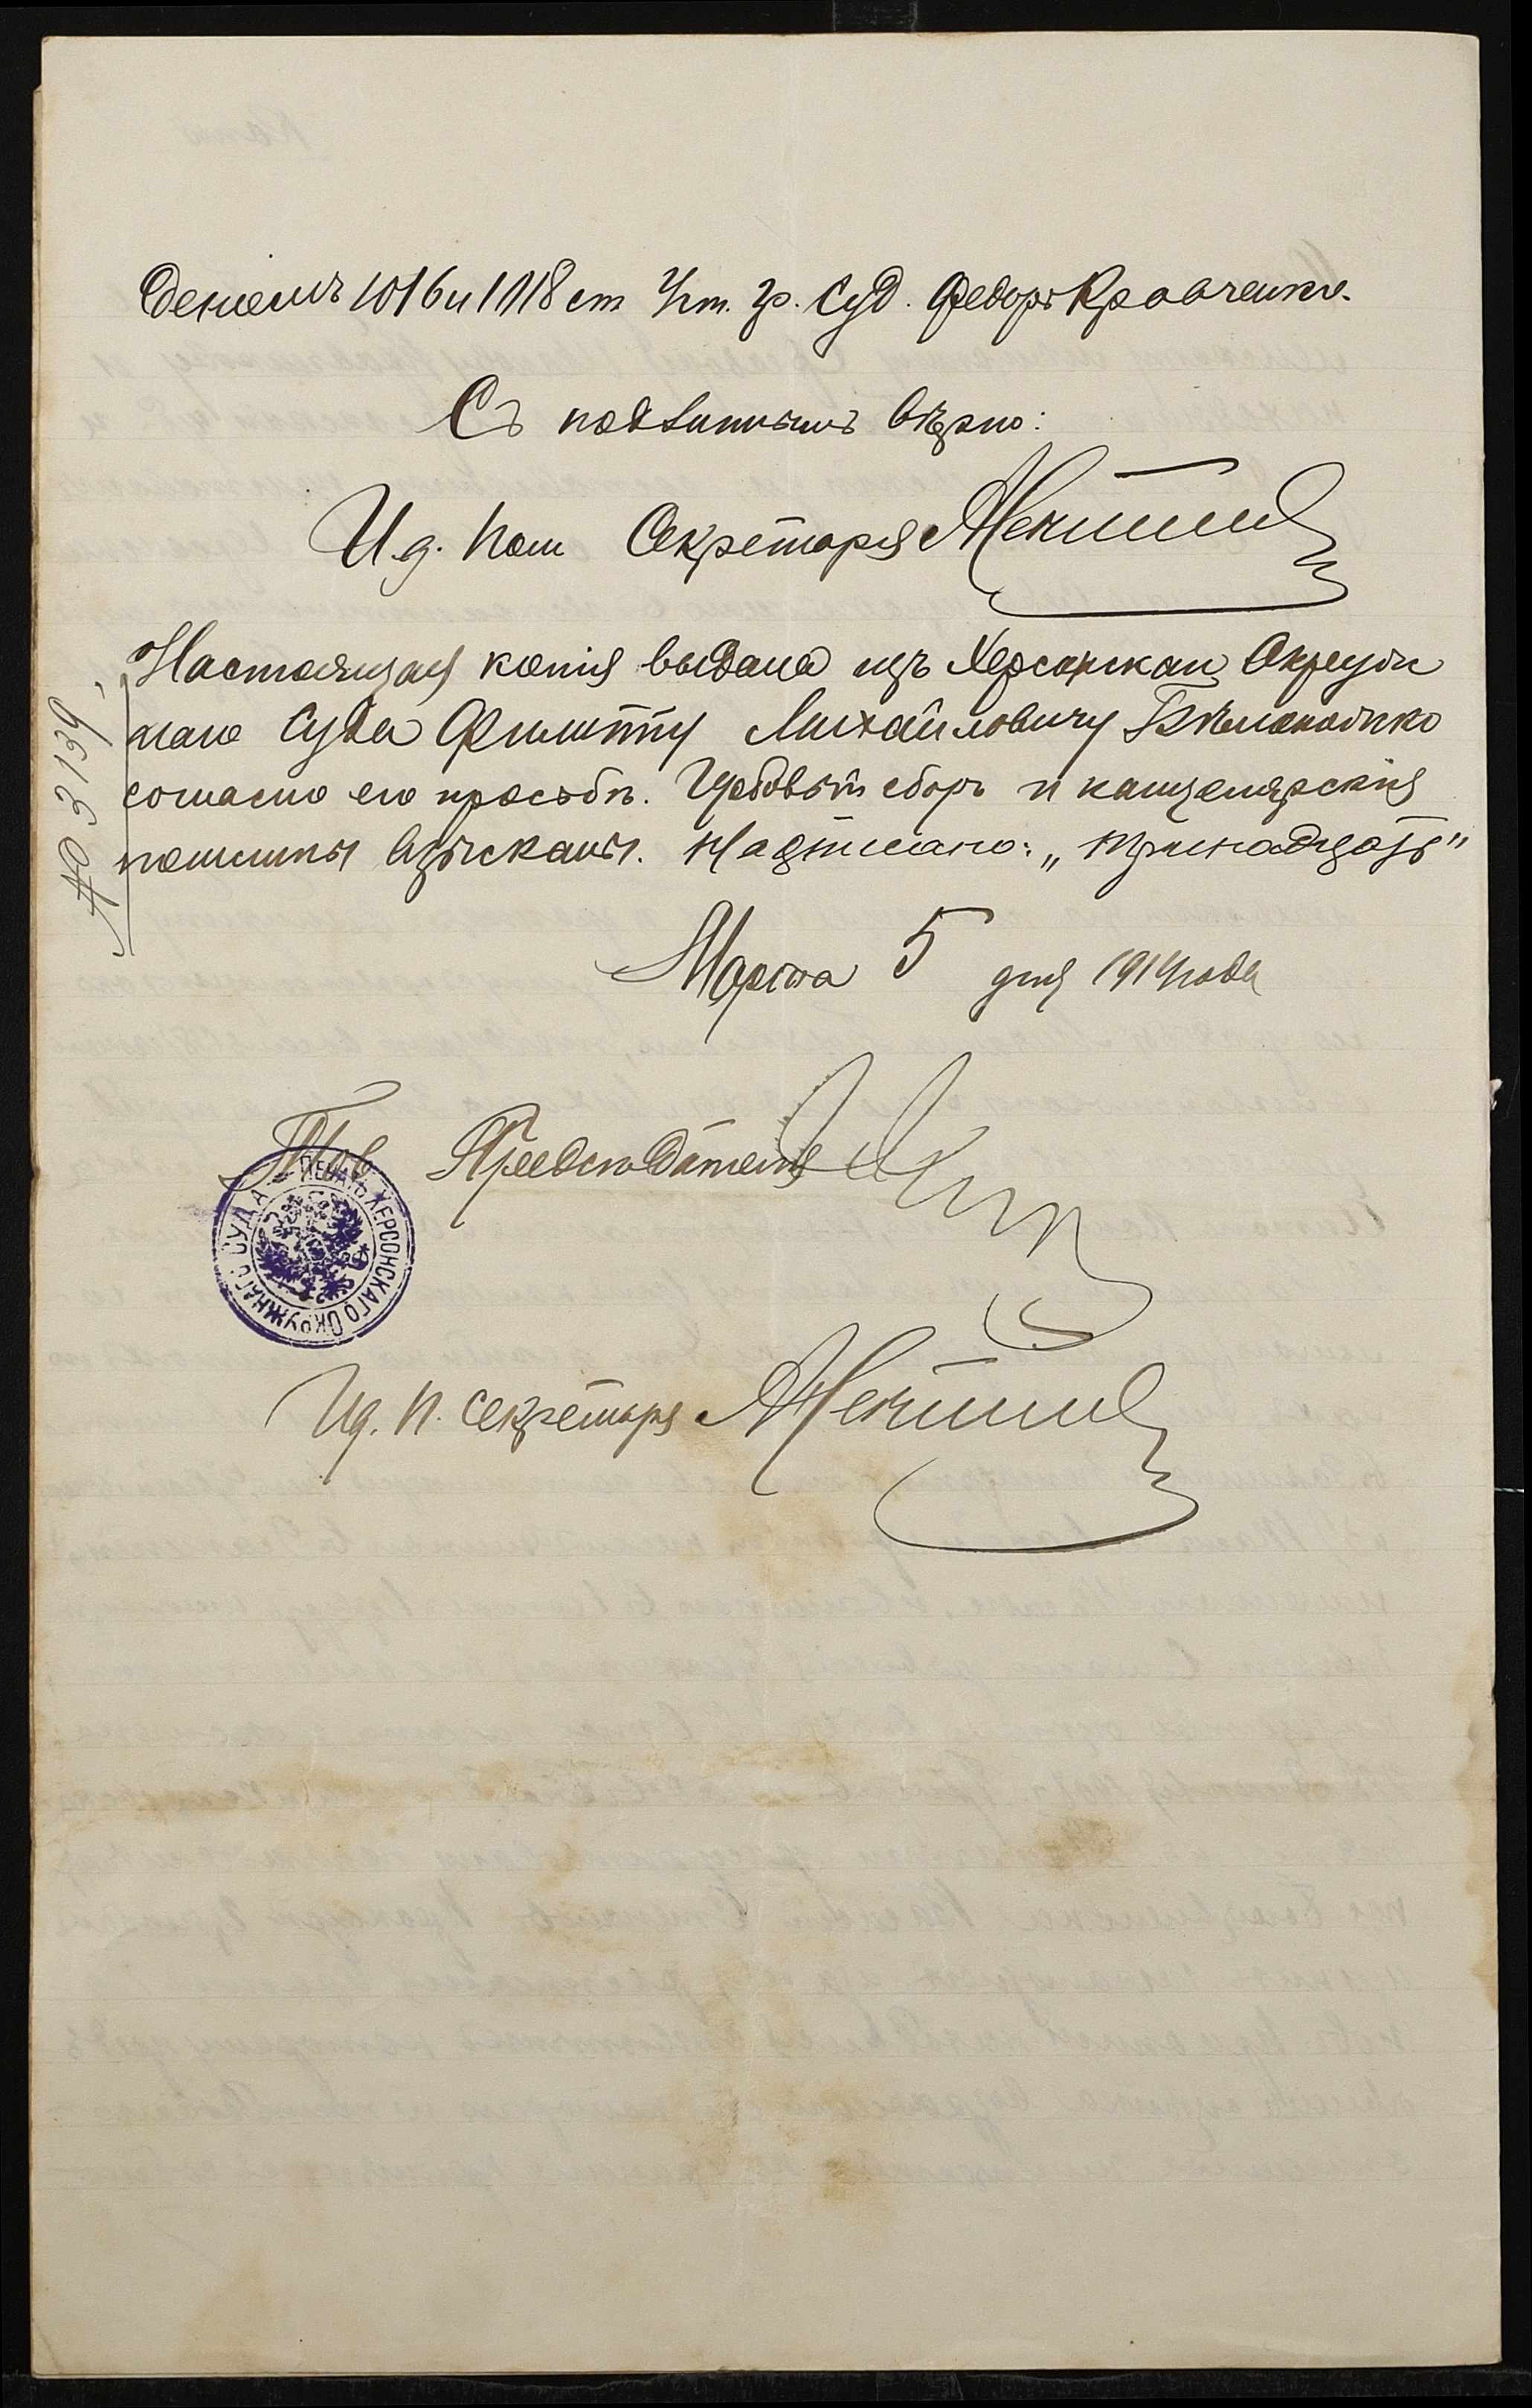 деніемъ 1016 и 1118 ст Уст. гр. Суд. Федоръ Кравченко.
Съ подлиннымъ вѣрно:
И.д. пом Секретаря
Настоящая копія выдана изъ Херсонскаго Окруж
наго Суда Филиппу Михайловичу
согласно его просьбѣ. Гербовый сборъ и канцелярскія
пошлины взысканы. Надписано: „тринадцать"
№ 3139
Марта 5 дня 1914 года
Тов Предсѣдателя
ПЕЧАТЬ ХЕРСОНСКАГО ОКРУЖНАГО СУДА
И.д. п. Секретаря